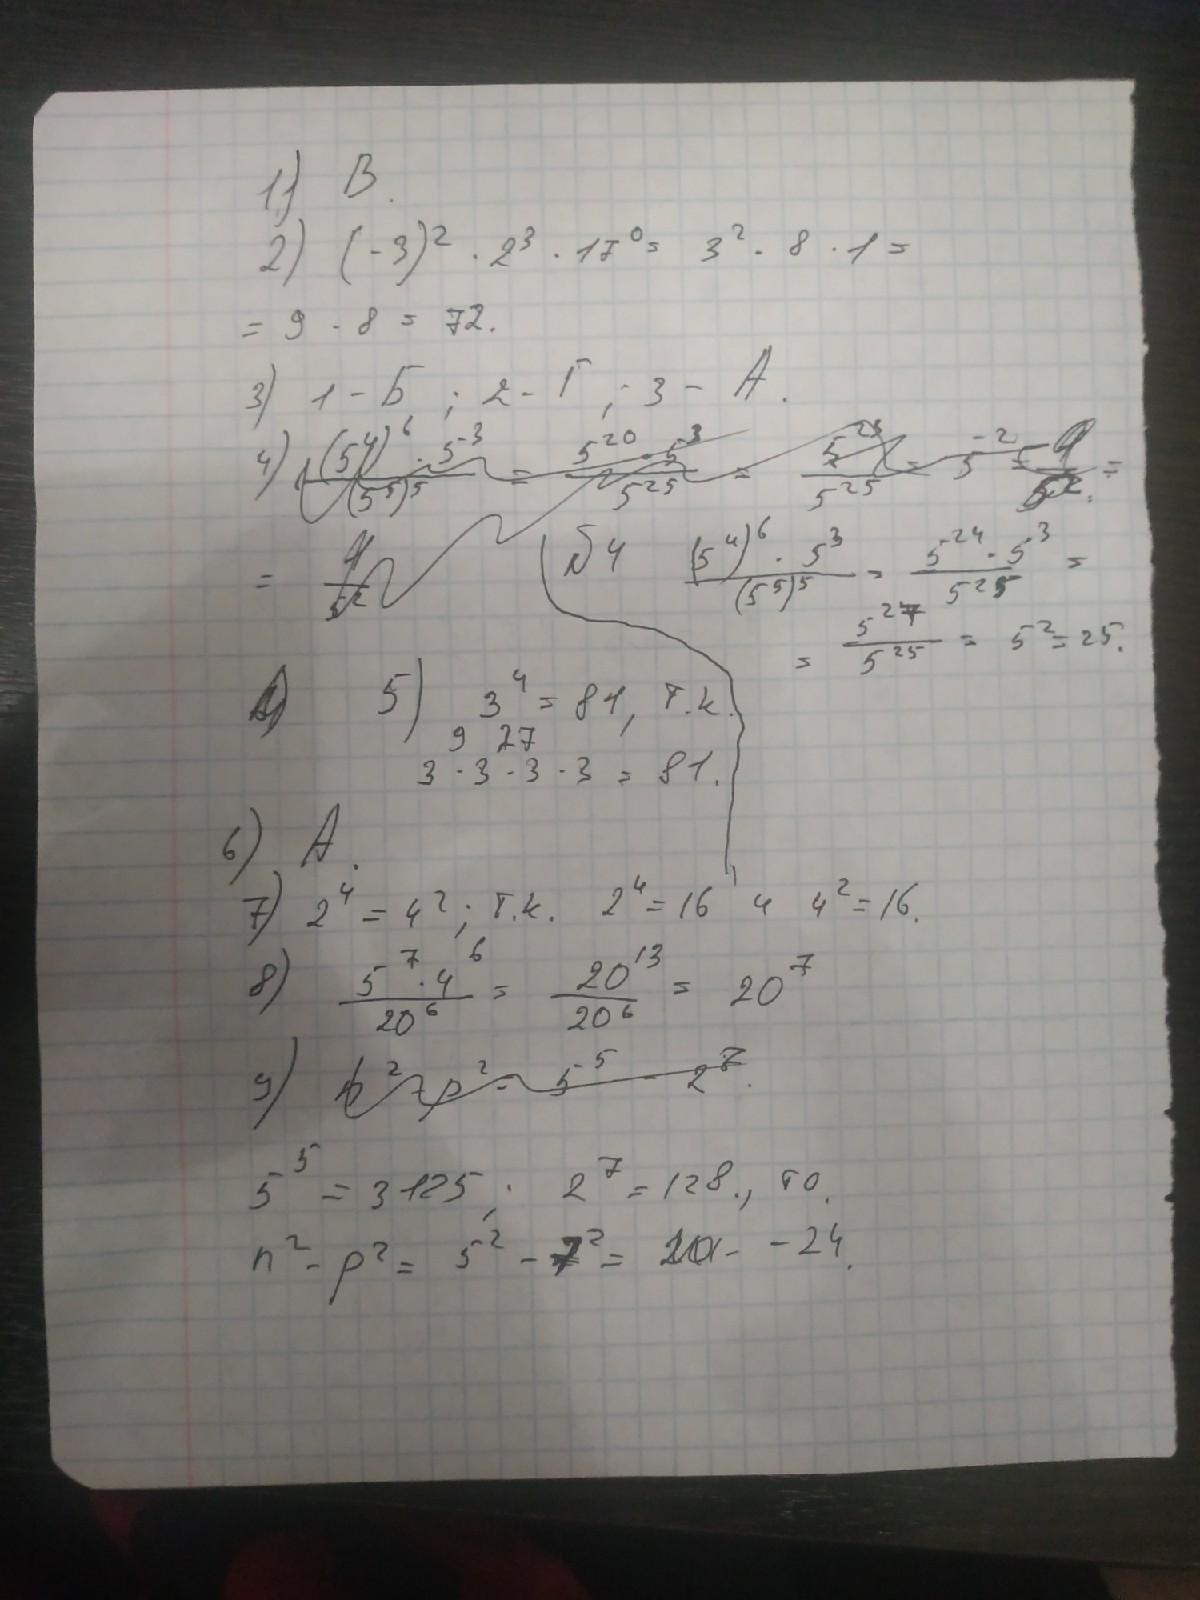 1) В.
2) (-3)² · 2³ · 17⁰ = 3² · 8 · 1 =
= 9 · 8 = 72.
3) 1 - Б; 2 - Г; 3 - А.
4) (5⁴)⁶ · 5⁻³ / (5⁵)⁵ = 5²⁰ · 5³ / 5²⁵ = 5²³ / 5²⁵ = 5⁻² = 1 / 5² =
= 1 / 5²
№4 (5⁴)⁶ · 5³ / (5⁵)⁵ = 5²⁴ · 5³ / 5²⁵ =
= 5²⁷ / 5²⁵ = 5² = 25.
5) 3⁴ = 81, т.к.
9 27
3 · 3 · 3 · 3 = 81.
6) А.
7) 2⁴ = 4²; т.к. 2⁴ = 16 и 4² = 16.
8) 5⁷ · 4⁶ / 20⁶ = 20¹³ / 20⁶ = 20⁷
9) n² - p² = 5⁵ - 2⁷.
5⁵ = 3125; 2⁷ = 128., то.
n² - p² = 5² - 7² = -24.